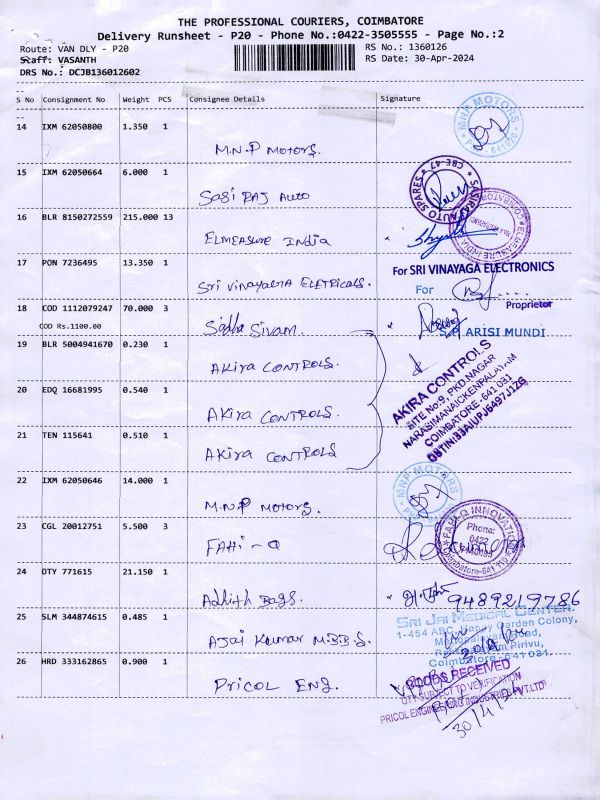 THE PROFESSIONAL COURIERS, COIMBATORE
Delivery Runsheet - P20 - Phone No.:0422-3505555 - Page No.:2
Route: VAN DLY - P20
RS No.: 1360126
Staff: VASANTH
RS Date: 30-Apr-2024
DRS No.: DCJB136012602
S No Consignment No Weight PCS Consignee Details Signature
14 IXM 62050800 1.350 1
M.N.P Motors.
MNP MOTORS
15 IXM 62050664 6.000 1
Sasi RAJ Auto
CBE-47
AUTO SPARES
16 BLR 8150272559 215.000 13
ELMEASURE India
ELMEASURE INDIA
17 PON 7236495 13.350 1
Sri Vinayaga ELETRICALS.
For SRI VINAYAGA ELECTRONICS
For
Proprietor
18 COD 1112079247 70.000 3
COD Rs.1100.00
Siddha Sivam.
S.P. ARISI MUNDI
19 BLR 5004941670 0.230 1
AKira CONTROLS.
20 EDQ 16681995 0.540 1
AKira CONTROLS.
21 TEN 115641 0.510 1
AKira CONTROLS
AKIRA CONTROLS
SITE No:9, PKD.NAGAR
NARASIMANAICKENPALAYAM
COIMBATORE-641 031
22 IXM 62050646 14.000 1
M.N.P Motors.
MNP MOTORS
23 CGL 20012751 5.500 3
FAHi - Q
INNOVATION
Phone:
0422
24 OTY 771615 21.150 1
Adhith Bags.
9489219786
25 SLM 344874615 0.485 1
Ajai Kumar M.B.B.S.
SRI JAI MEDICAL CENTER.
1-454 ABC, Happy Garden Colony,
Road,
Pirivu,
Coimbatore-641031.
26 HRD 333162865 0.900 1
Pricol Eng.
GOODS RECEIVED
QTY SUBJECT TO VERIFICATION
PRICOL ENGINEERING INDUSTRIES PVT.LTD
30/4/24